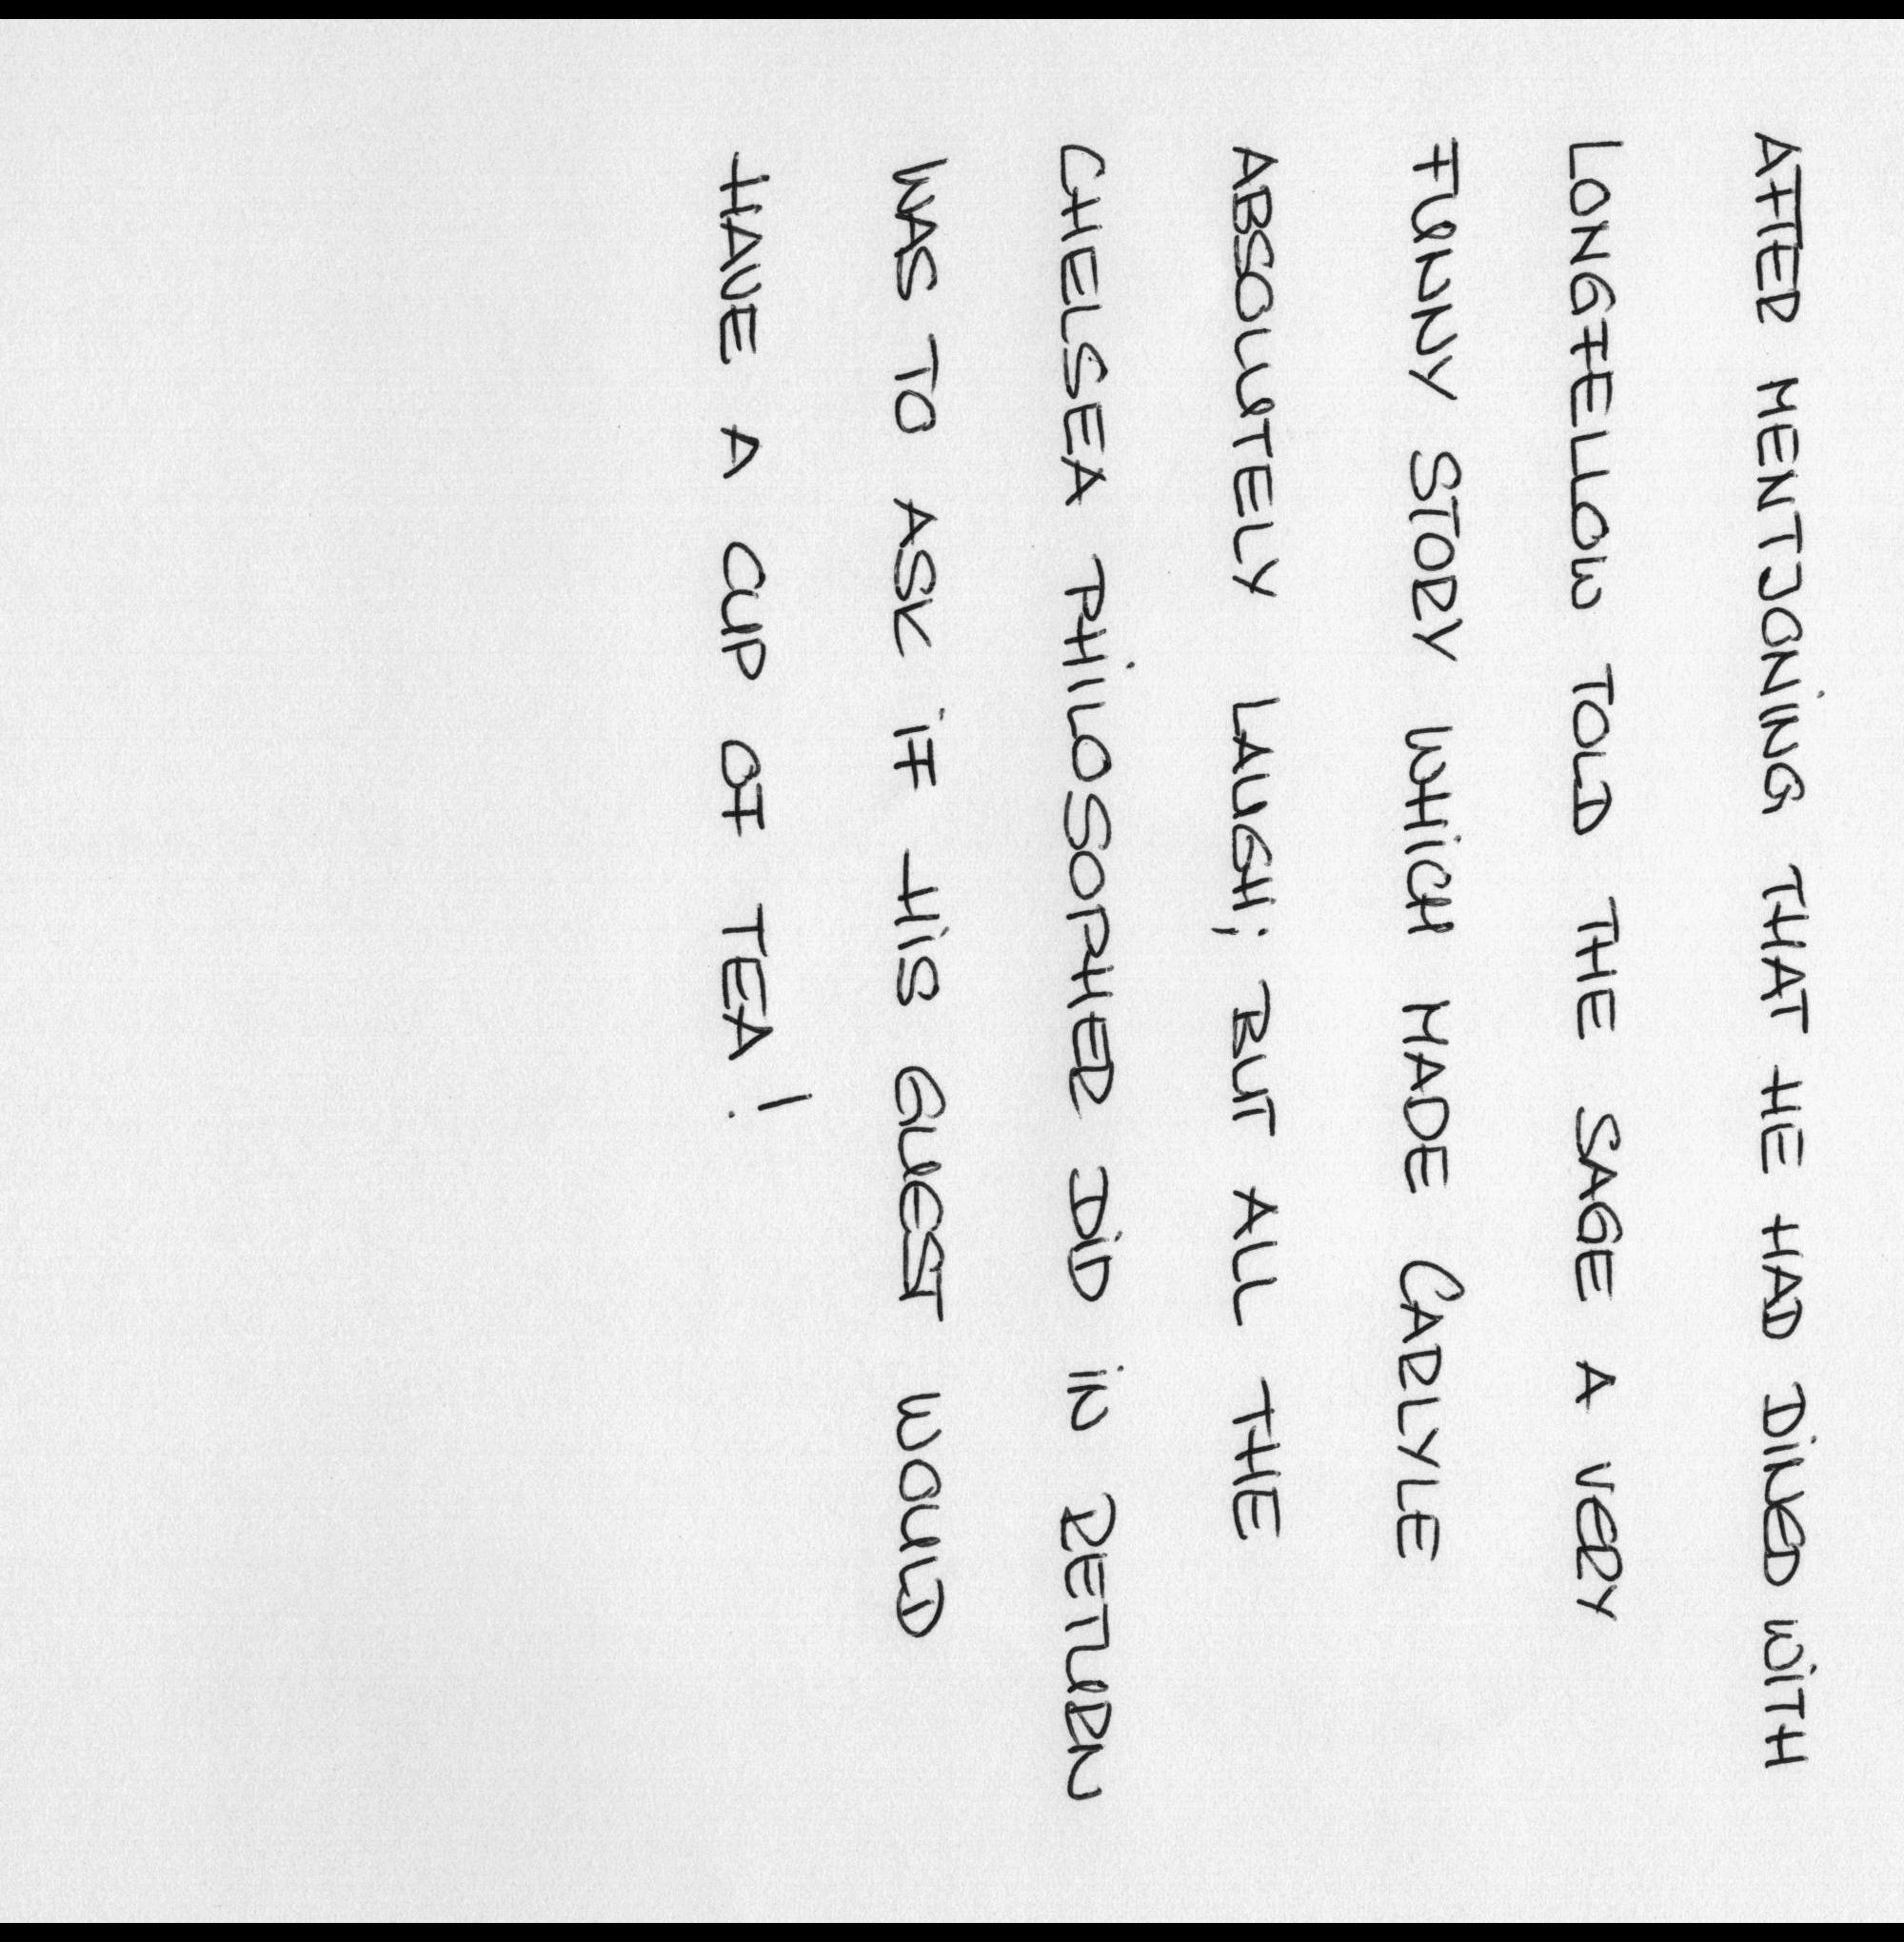 AFTER MENTIONING THAT HE HAD DINED WITH
LONGFELLOW TOLD THE SAGE A VERY
FUNNY STORY WHICH MADE CARLYLE
ABSOLUTELY LAUGH; BUT ALL THE
CHELSEA PHILOSOPHER DID IN RETURN
WAS TO ASK IF HIS GUEST WOULD
HAVE A CUP OF TEA!